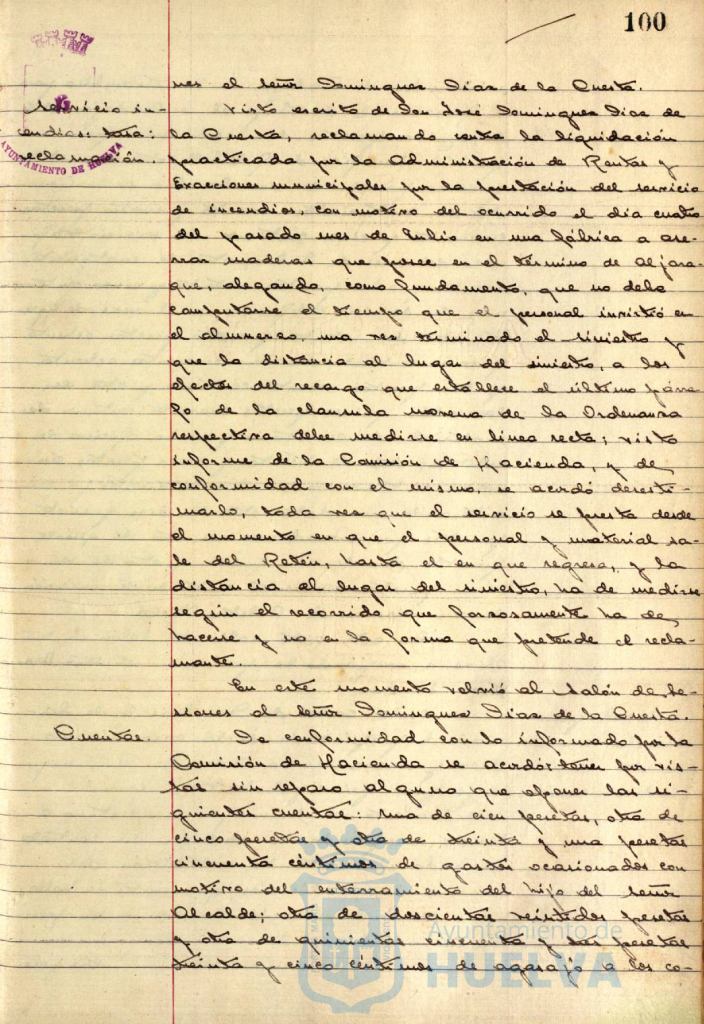 100
nes el señor Dominguez Diaz de la Cuesta.
Servicio in-
cendios: tasa:
reclamación.
AYUNTAMIENTO DE HUELVA
Visto escrito de Don José Dominguez Diaz de
la Cuesta, reclamando contra la liquidación
practicada por la Administración de Rentas y
Exacciones municipales por la prestación del servicio
de incendios, con motivo del ocurrido el dia cuatro
del pasado mes de Julio en una fábrica a ase-
rrar maderas que posee en el término de Aljara-
que, alegando, como fundamento, que no debe
computarse el tiempo que el personal invirtió en
el almuerzo, una vez terminado el siniestro y
que la distancia al lugar del siniestro, a los
efectos del recargo que establece el último párra-
fo de la clausula novena de la Ordenanza
respectiva debe medirse en linea recta; visto
informe de la Comisión de Hacienda, y de
conformidad con el mismo, se acordó desesti-
marlo, toda vez que el servicio se presta desde
el momento en que el personal y material sa-
le del Retén, hasta el en que regresa, y la
distancia al lugar del siniestro, ha de medirse
según el recorrido que forzosamente ha de
hacerse y no en la forma que pretende el recla-
mante.
En este momento volvió al Salón de Se-
siones el señor Dominguez Diaz de la Cuesta.
Cuentas.
De conformidad con lo informado por la
Comisión de Hacienda se acordó: tener por vis-
tas sin reparo alguno que oponer las si-
guientes cuentas: una de cien pesetas, otra de
cinco pesetas y otra de treinta y una pesetas
cincuenta céntimos de gastos ocasionados con
motivo del enterramiento del hijo del señor
Alcalde; otra de doscientas veintidos pesetas
y otra de quinientas cincuenta y seis pesetas
treinta y cinco céntimos de agasajo a los co-
Ayuntamiento de
HUELVA